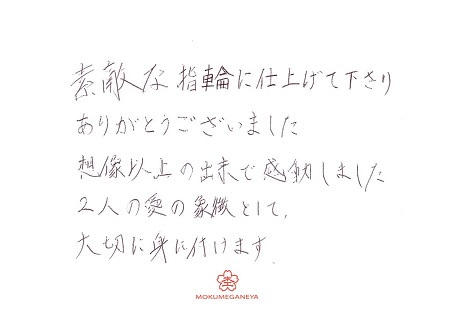 素敵な指輪に仕上げて下さり
ありがとうございました
想像以上の出来で感動しました
2人の愛の象徴として、
大切に身に付けます.
MOKUMEGANEYA